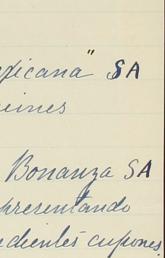 exicana" SA
eines
Bonanza SA
presentando
edientes cupones,